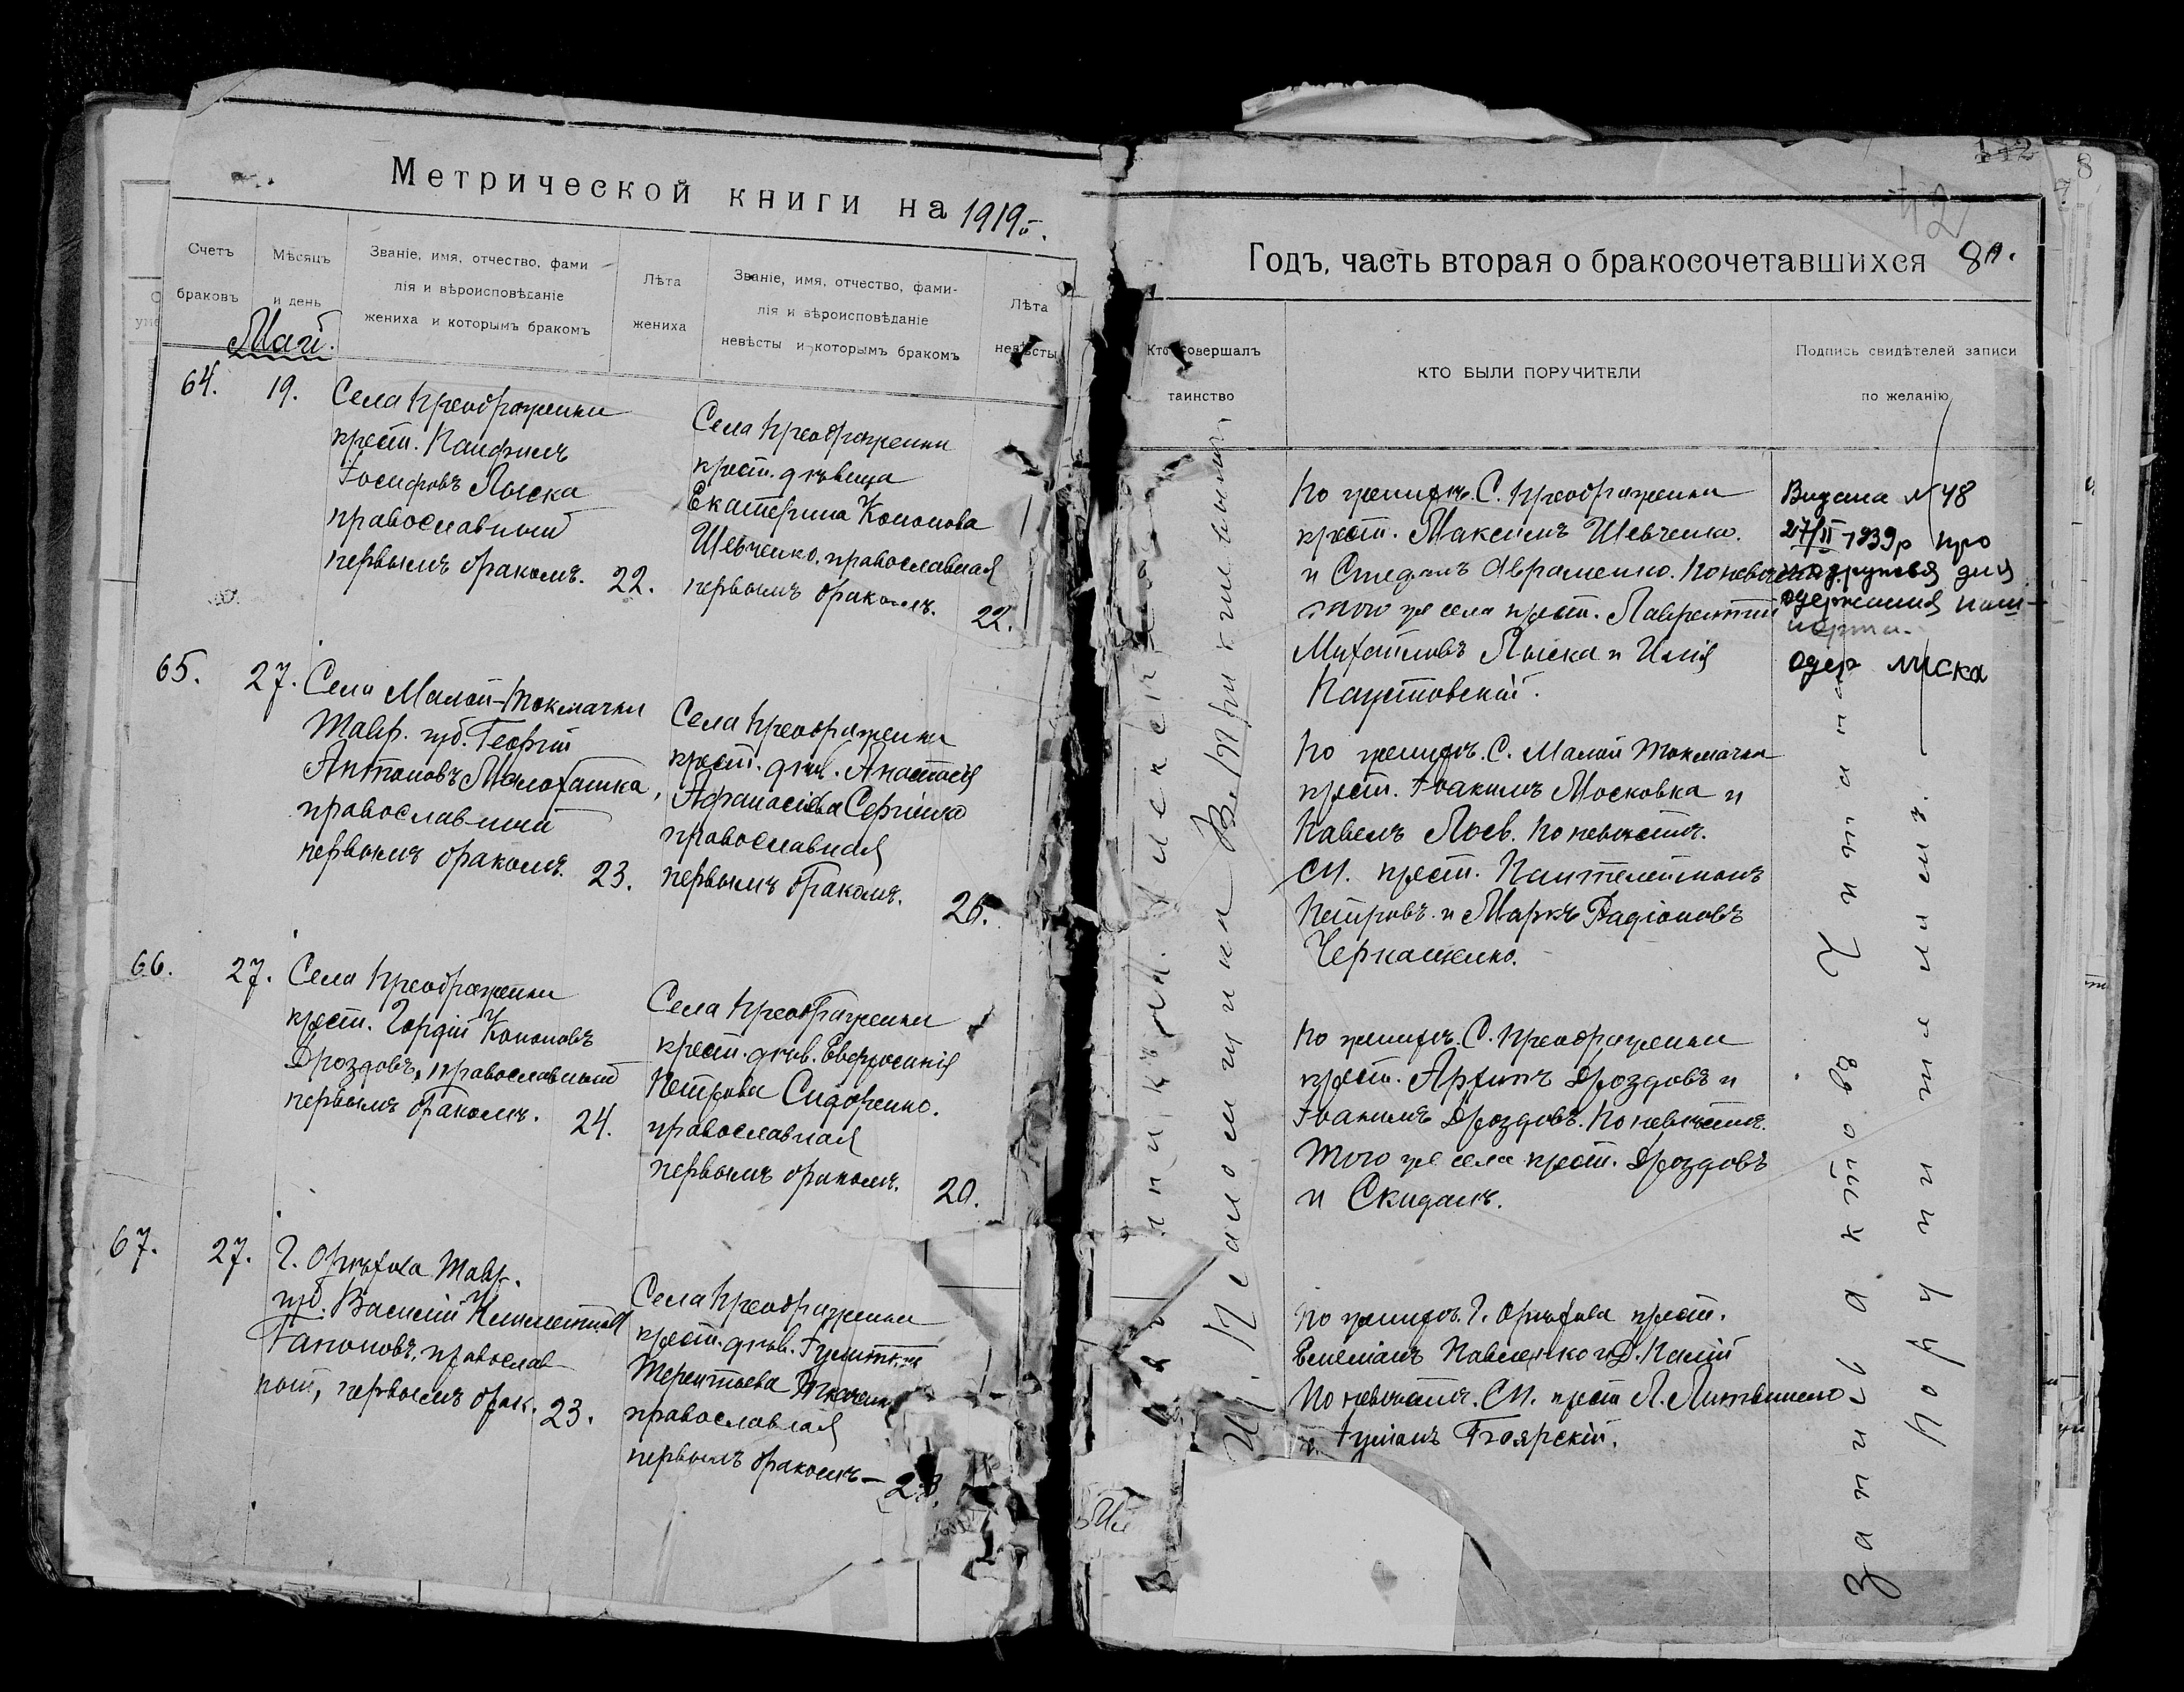 Метрической книги на 1919 г.
Счетъ
браковъ
Мѣсяцъ
и день
Званіе, имя, отчество, фами
лія и вѣроисповѣданіе
жениха и которымъ бракомъ
Лѣта
жениха
Званіе, имя, отчество, фами-
лія и вѣроисповѣданіе
невѣсты и которымъ бракомъ
Лѣта
невѣсты
Май.
64. 19.
Села Преображенки
крест. Панфилъ
Іосифовъ Лыска
православный
первымъ бракомъ. 22.
Села Преображенки
крест. дѣвица
Екатерина Кононова
Шевченко, православная
первымъ бракомъ. 22.
65. 27.
Села Малой-Токмачки
Тавр. губ. Георгій
Антоновъ Малохатка,
православный
первымъ бракомъ. 23.
Села Преображенки
крест. дѣв. Анастасія
Афанасіева Сергіенко
православная
первымъ бракомъ. 26.
66. 27.
Села Преображенки
крест. Гордій Кононовъ
Дроздовъ, православный
первымъ бракомъ. 24.
Села Преображенки
крест. дѣв. Евфросинія
Петрова Сидоренко.
православная
первымъ бракомъ. 20.
67. 27.
Г. Орѣхова Тавр.
губ. Василій Климентіев
Гапоновъ, православ
ный, первымъ брак. 23.
Села Преображенки
крест. дѣв.
Терентьева
православная
первымъ бракомъ—
Годъ, часть вторая о бракосочетавшихся 80.
142
42
8
7
Кто совершалъ
таинство
КТО БЫЛИ ПОРУЧИТЕЛИ
Подпись свидѣтелей записи
по желанію
По женихѣ. С. Преображенки
крест. Максимъ Шевченко.
и Стефанъ Авраменко. По невѣстѣ.
того же села крест. Лаврентій
Михайловъ Лыска и Илія
Паустовскій.
Видана № 48
27/II 1939 р про
одруження для
одержання паш-
порта.
одер лиска
По женихѣ. С. Малой Токмачки
крест. Іоакимъ Московка и
Павелъ Лоев. По невѣстѣ.
СП. крест. Пантелеимонъ
Петровъ и Маркъ Радіоновъ
Черкашенко.
По женихѣ. С. Преображенки
крест. Архипъ Дроздовъ и
Іоакимъ Дроздовъ. По невѣстѣ.
того же села крест. Дроздовъ
и Скиданъ.
По женихѣ. Г. Орѣхова крест.
Емеліанъ Павленко и Д. Палій
По невѣстѣ. СП. крест Л. Литвиненко
и Іуліанъ Боярскій.
Псаломщикъ
Запись актовъ читана
поручителямъ.